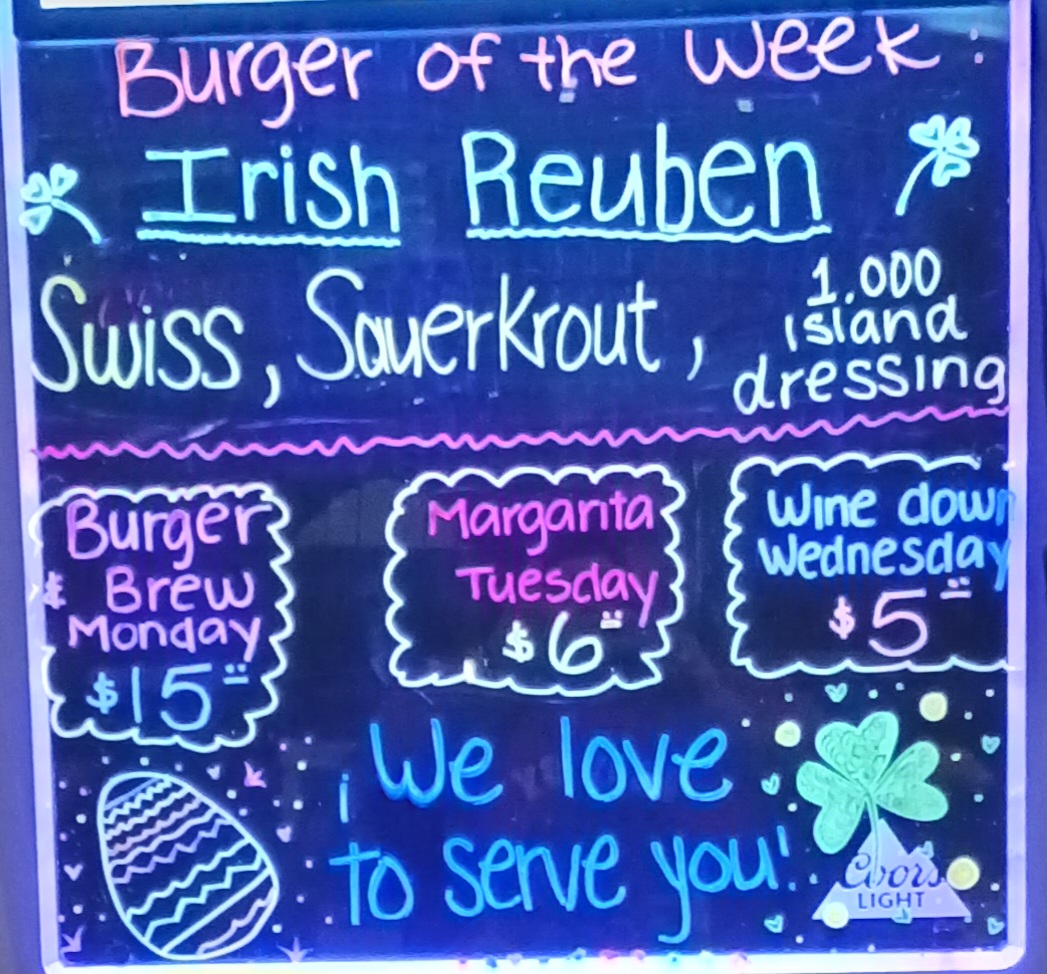 Burger of the Week :
Irish Reuben
Swiss, Sauerkrout, 1.000
island
dressing
Burger
& Brew
Monday
$15
Margarita
Tuesday
$6
Wine down
Wednesday
$5
¡We love
to serve you!
Coors
LIGHT